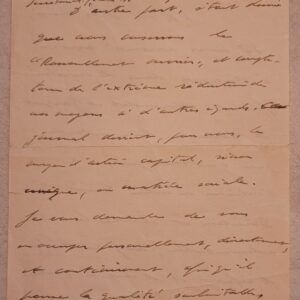 D'autre part, étant donné
que nous assurons le
"Rassemblement ouvrier", et compte
tenu de l'extrême réduction de
nos moyens à d'autres égards, le
journal devient, pour nous, le
moyen d'action capital, sinon
unique, en matière sociale.
Je vous demande de vous
en occuper personnellement, directement,
et continûment, afin qu'il
prenne la qualité souhaitable